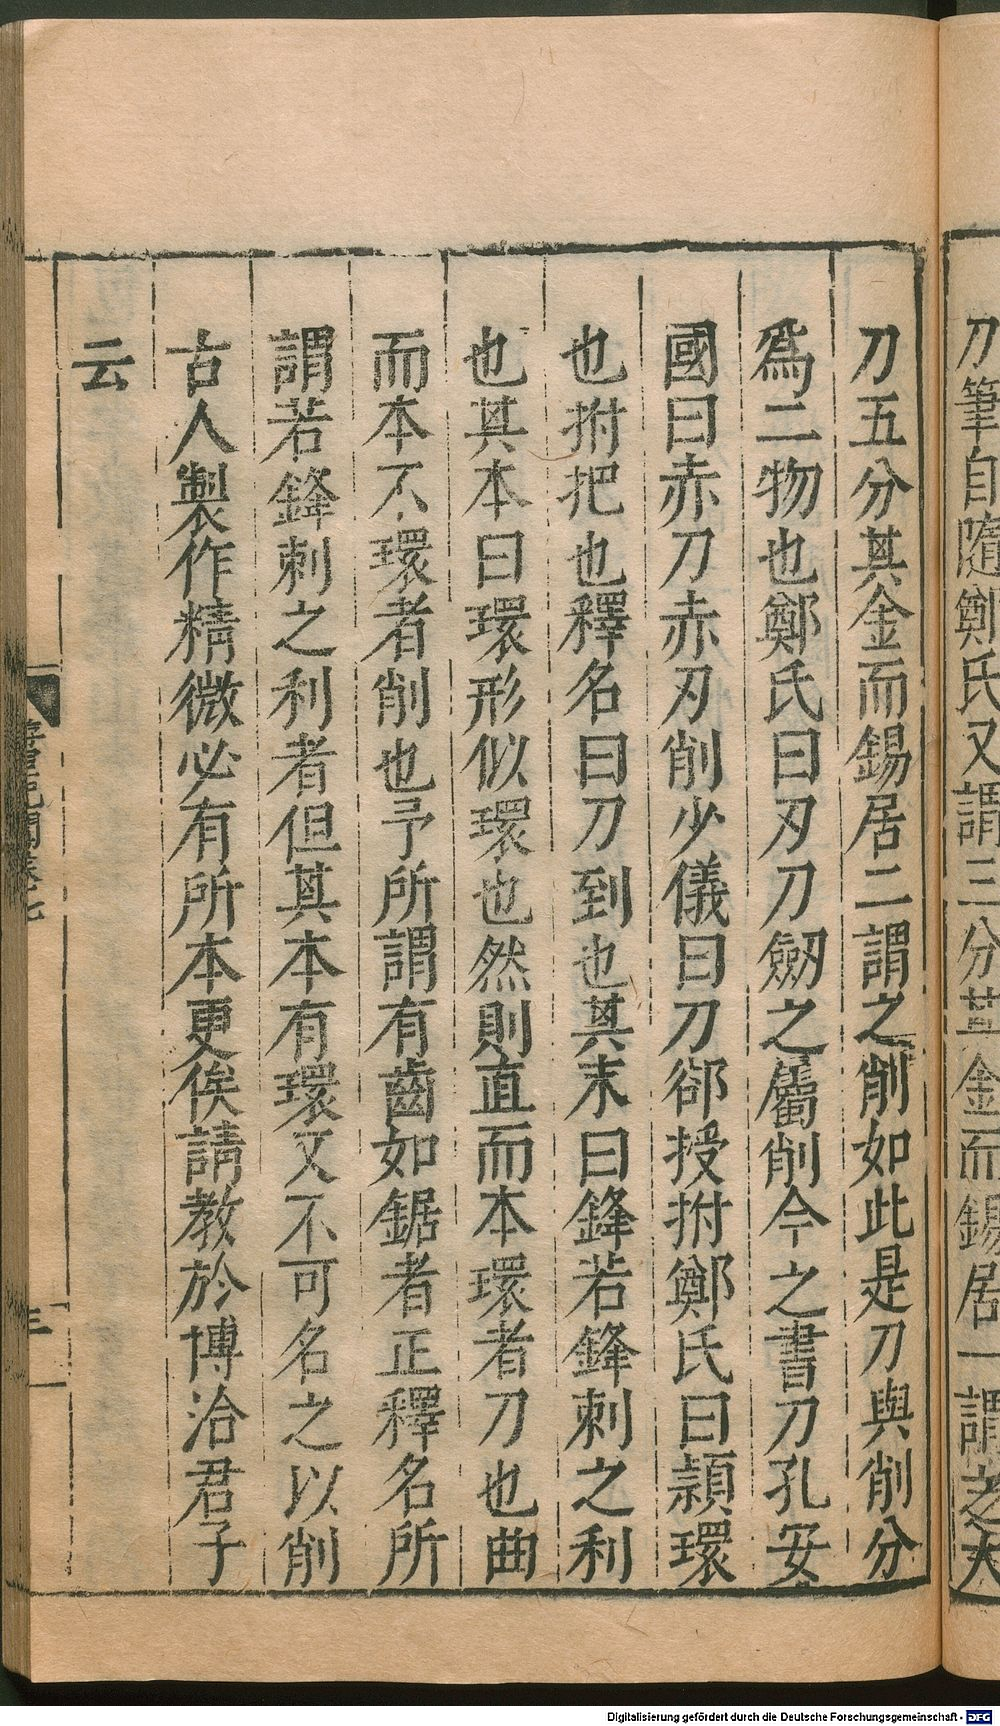 刀筆自隨鄭氏又謂三分其金而錫居一謂之大
刀五分其金而錫居二謂之削如此是刀與削分
爲二物也鄭氏曰刃刀劒之屬削今之書刀孔安
國曰赤刀赤刃削少儀曰刀郤授拊鄭氏曰頴環
也拊把也釋名曰刀到也其末曰鋒若鋒刺之利
也其本曰環形似環也然則直而本環者刀也曲
而本不環者削也予所謂有齒如鋸者正釋名所
謂若鋒刺之利者但其本有環又不可名之以削
古人製作精微必有所本更俟請教於博洽君子
云
卷七
三
Digitalisierung gefördert durch die Deutsche Forschungsgemeinschaft - DFG